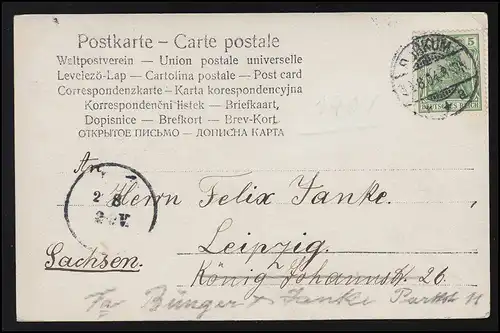 Postkarte – Carte postale
Weltpostverein — Union postale universelle
Levelező-Lap — Cartolina postale — Post card
Correspondenzkarte — Karta korespondencyjna
Korrespondenční lístek — Briefkaart,
Dopisnice — Brefkort — Brev-Kort.
ОТКРЫТОЕ ПИСЬМО — ДОПИСНА КАРТА
BORKUM
5
DEUTSCHES REICH
An
Herrn Felix Janke.
2 8
V.
Leipzig.
Sachsen.
König Johannstr. 26.
Fa Bünger & Janke Parkstr 11